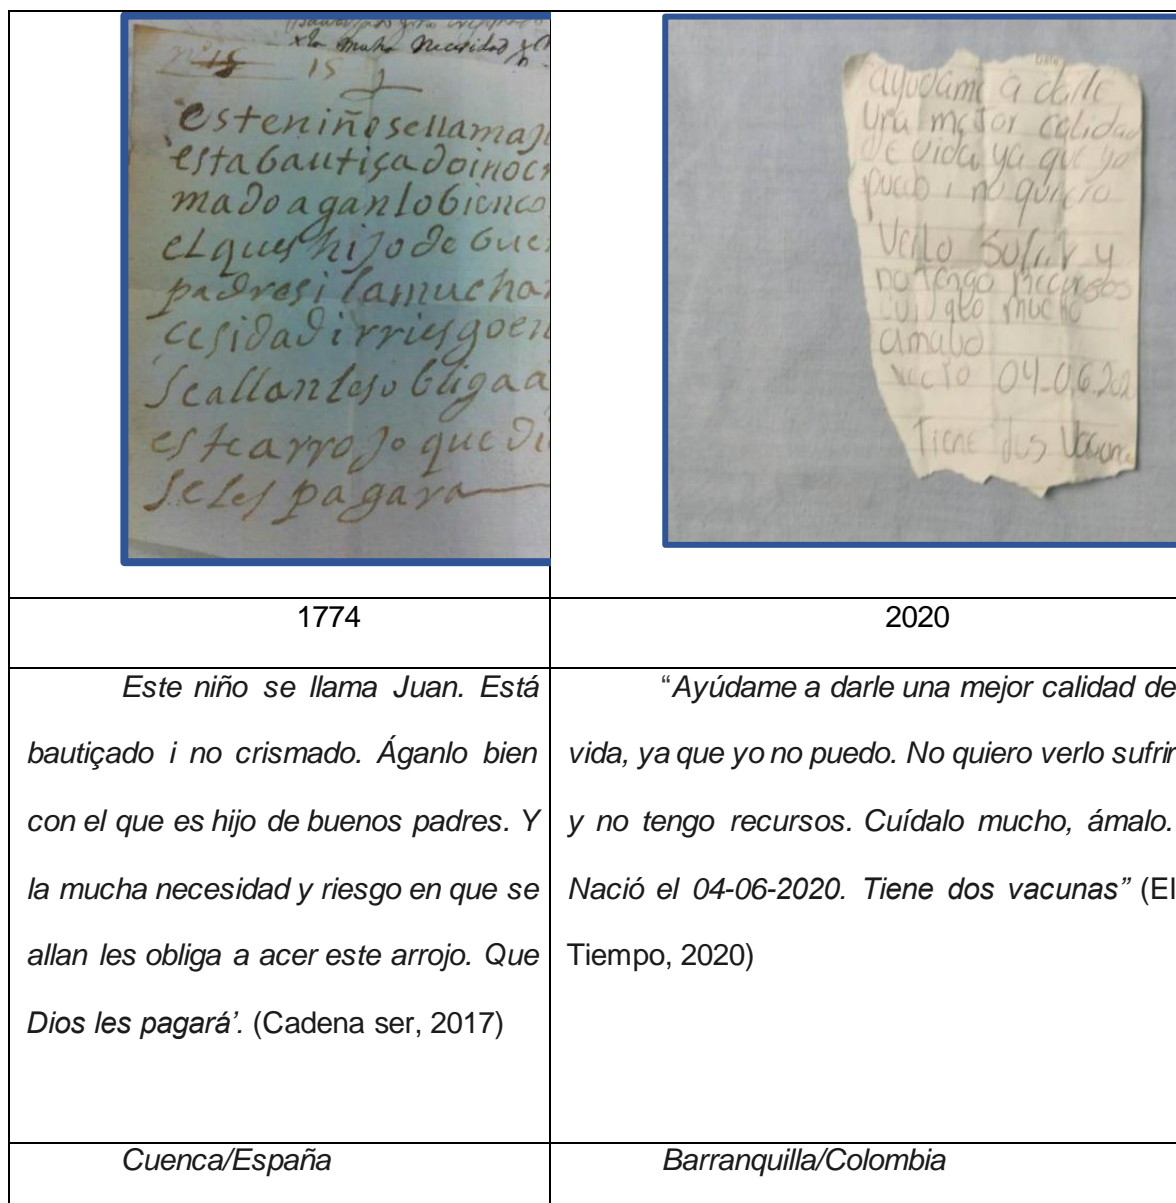 la mucha Necesidad
nº 15
15
esteniñosellamaju
estabautiçadoinocr
madoaganlobienco
elqueshijodebue
padresilamuchan
cesidadirriesgoen
seallanlesobligaa
estearrojoquedi
selespagara
ayudame a darle
una mejor calidad
de vida ya que yo
puedo i no quiero
Verlo sufrir y
no tengo recursos
cuidalo mucho
amalo
Nacio 04-06.202
Tiene dos Vacuna
1774
2020
Este niño se llama Juan. Está
bautiçado i no crismado. Áganlo bien
con el que es hijo de buenos padres. Y
la mucha necesidad y riesgo en que se
allan les obliga a acer este arrojo. Que
Dios les pagará’. (Cadena ser, 2017)
“Ayúdame a darle una mejor calidad de
vida, ya que yo no puedo. No quiero verlo sufrir
y no tengo recursos. Cuídalo mucho, ámalo.
Nació el 04-06-2020. Tiene dos vacunas” (El
Tiempo, 2020)
Cuenca/España
Barranquilla/Colombia